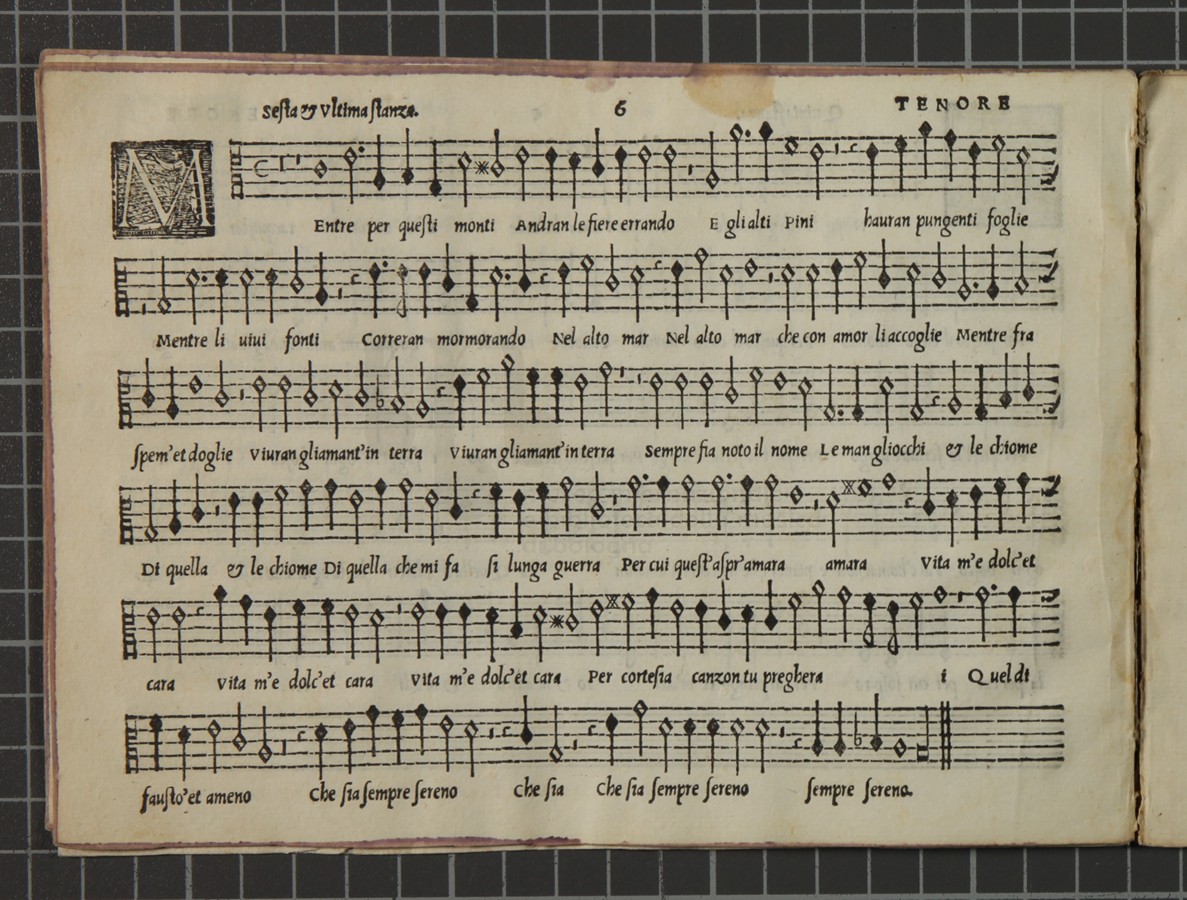 Sesta & Vltima stanza. 6 TENORE
MEntre per questi monti Andran le fiere errando E gli alti Pini hauran pungenti foglie
Mentre li uiui fonti Correran mormorando Nel alto mar Nel alto mar che con amor li accoglie Mentre fra
spem'et doglie Viuran gliamant'in terra Viuran gliamant'in terra Sempre fia noto il nome Le man gliocchi & le chiome
Di quella & le chiome Di quella che mi fa si lunga guerra Per cui quest'aspr'amara amara Vita m'e dolc'et
cara Vita m'e dolc'et cara Vita m'e dolc'et cara Per cortesia canzon tu preghera i Quel di
fausto'et ameno Che sia sempre sereno Che sia Che sia sempre sereno sempre sereno.